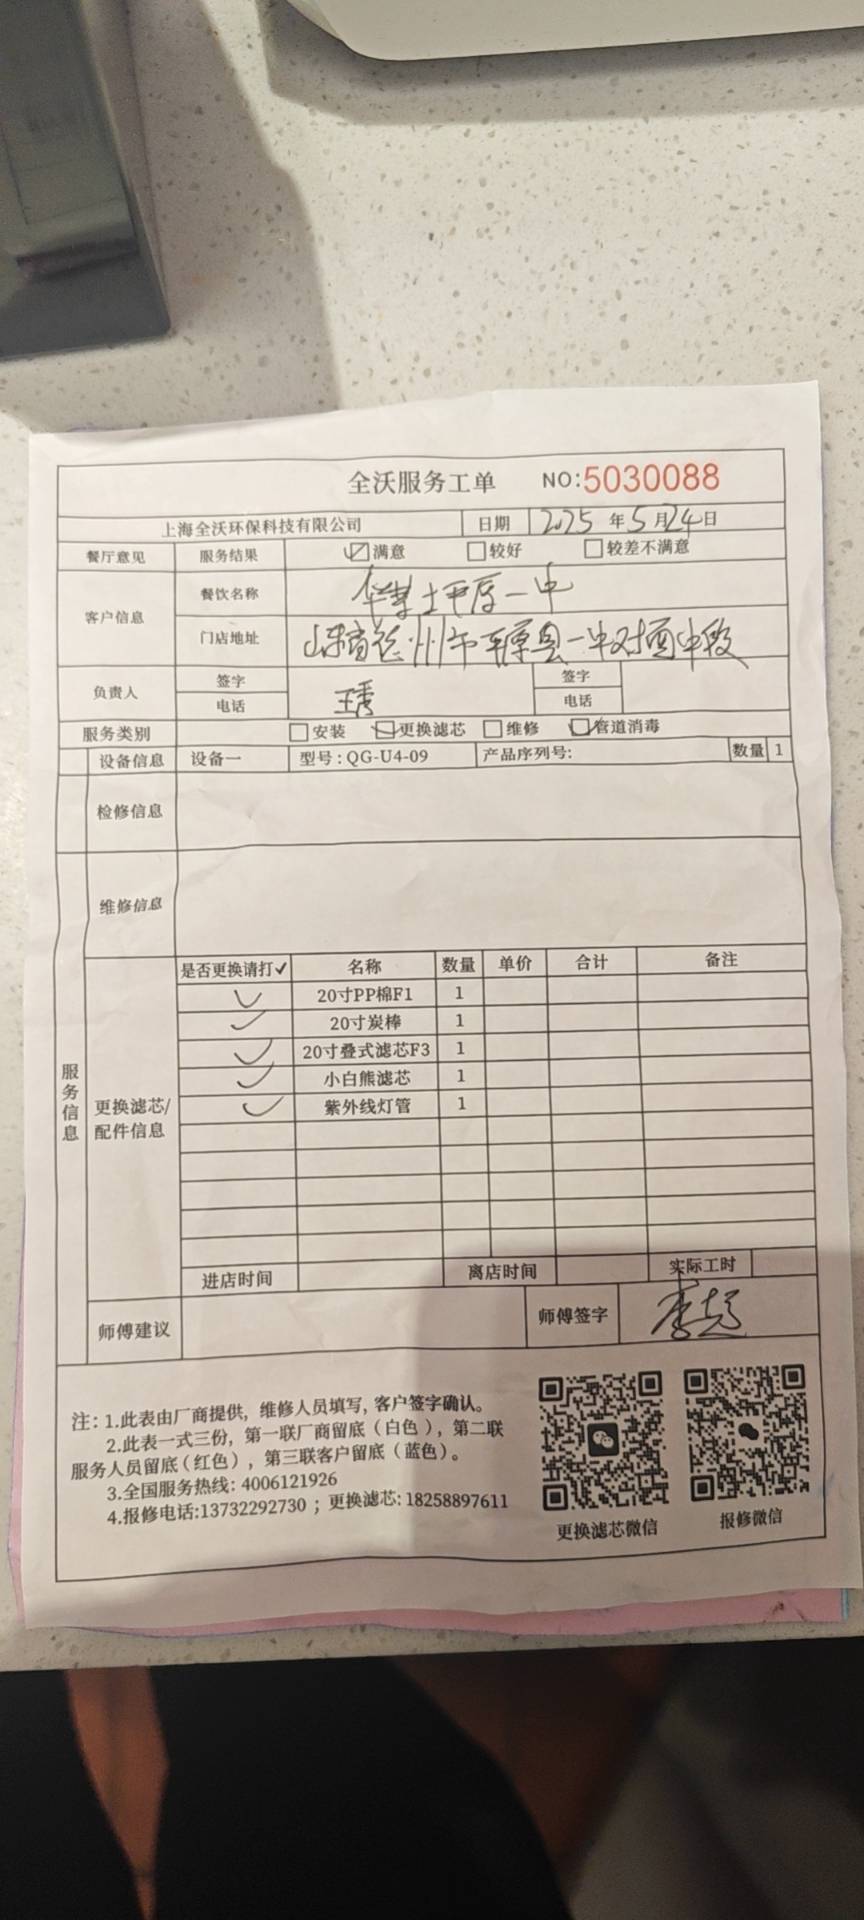 全沃服务工单 NO:5030088
上海全沃环保科技有限公司 日期 2025 年 5 月 24 日
餐厅意见 服务结果 ☑满意 □较好 □较差不满意
客户信息 餐饮名称 华莱士平原一中
门店地址 山东省德州市平原县一中对面中段
负责人 签字 王秀 签字
电话 电话
服务类别 □安装 ☑更换滤芯 □维修 ☑管道消毒
设备信息 设备一 型号:QG-U4-09 产品序列号: 数量 1
检修信息
维修信息
服务信息
更换滤芯/
配件信息
是否更换请打✓ 名称 数量 单价 合计 备注
✓ 20寸PP棉F1 1
✓ 20寸炭棒 1
✓ 20寸叠式滤芯F3 1
✓ 小白熊滤芯 1
✓ 紫外线灯管 1
进店时间 离店时间 实际工时
师傅建议 师傅签字 李超
注: 1.此表由厂商提供, 维修人员填写, 客户签字确认。
2.此表一式三份, 第一联厂商留底(白色), 第二联
服务人员留底(红色), 第三联客户留底(蓝色)。
3.全国服务热线: 4006121926
4.报修电话:13732292730 ; 更换滤芯: 18258897611
更换滤芯微信 报修微信